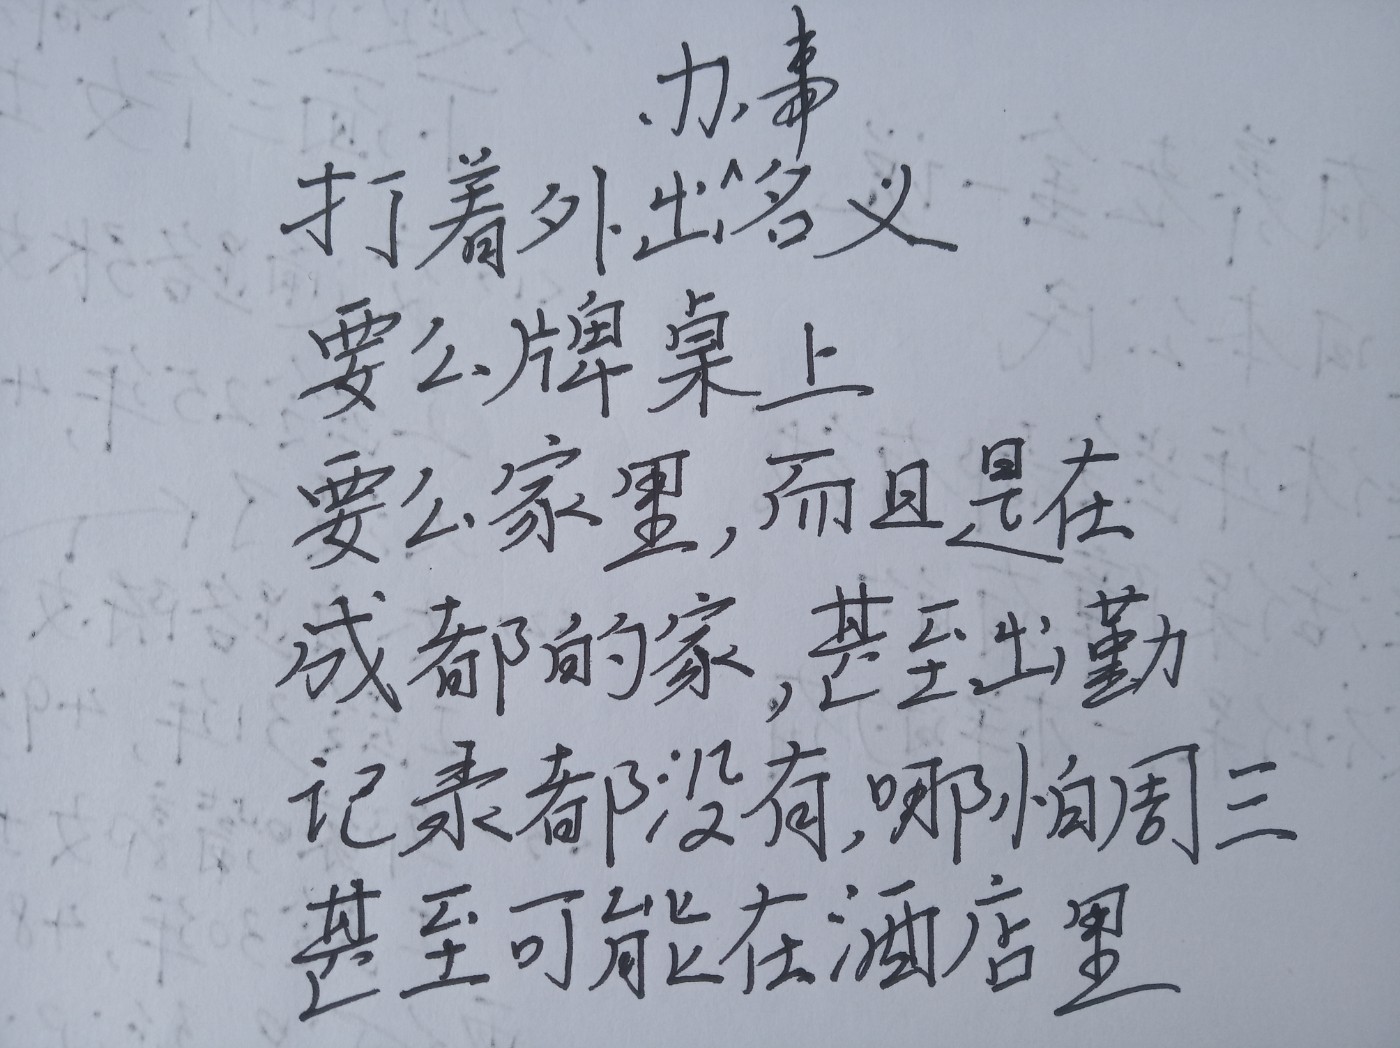 办事
打着外出^名义
要么牌桌上
要么家里,而且是在
成都的家,甚至出勤
记录都没有,哪怕周三
甚至可能在酒店里